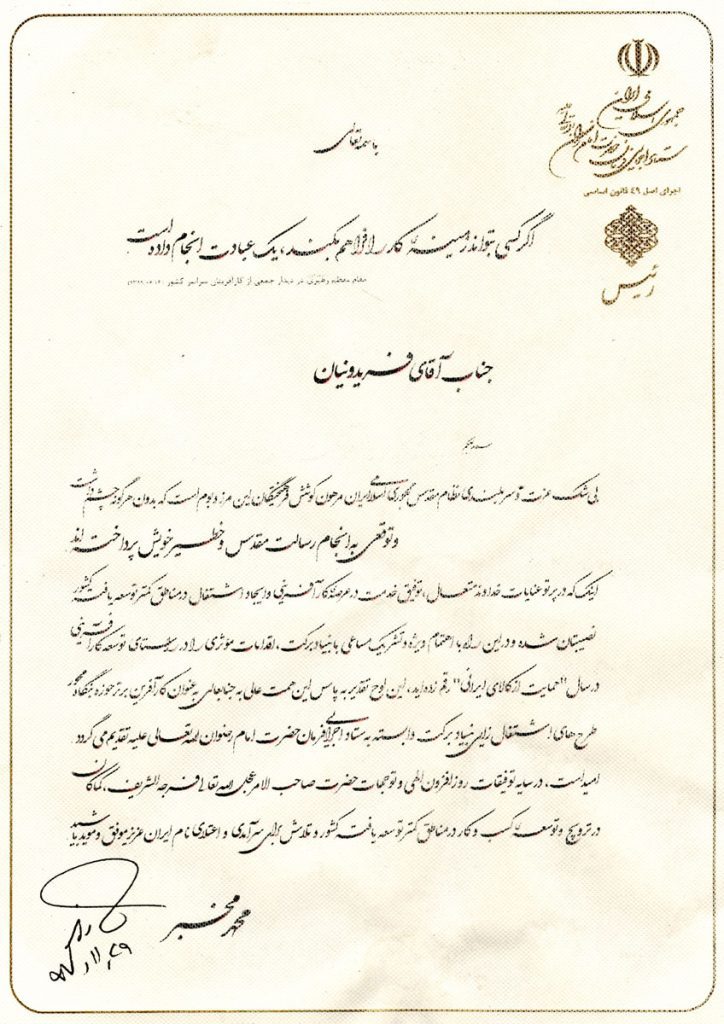 جمهوری اسلامی ایران
ستاد اجرایی فرمان حضرت امام
اجرای اصل ۴۹ قانون اساسی
رئیس
باسمه تعالی
اگر کسی بتواند زمینهٔ کار را فراهم بکند، یک عبادت انجام داده است
مقام معظم رهبری در دیدار جمعی از کارآفرینان سراسر کشور
جناب آقای فریدونیان
بی شک عزت و سربلندی نظام مقدس جمهوری اسلامی ایران مرهون کوشش فرهیختگان این مرز و بوم است که بدون هرگونه چشم داشت
و توقعی به انجام رسالت مقدس و خطیر خویش پرداخته اند
اینک که در پرتو عنایات خداوند متعال، توفیق خدمت در عرصه کارآفرینی و ایجاد اشتغال در مناطق کمتر توسعه یافته کشور
نصیبتان شده و در این راه با اهتمام ویژه و تشریک مساعی با بنیاد برکت، اقدامات مؤثری را در راستای توسعه کارآفرینی
در سال "حمایت از کالای ایرانی" رقم زده اید، این لوح تقدیر به پاس این همت عالی به جنابعالی به عنوان کارآفرین برتر حوزه بنگاه محور
طرح های اشتغال زایی بنیاد برکت وابسته به ستاد اجرایی فرمان حضرت امام رضوان الله تعالی علیه تقدیم می گردد
امید است، در سایه توفیقات روزافزون الهی و توجهات حضرت صاحب الامر عجل الله تعالی فرجه الشریف، کماکان
در ترویج و توسعهٔ کسب و کار در مناطق کمتر توسعه یافته کشور و تلاش برای سرآمدی و اعتلای نام ایران عزیز موفق و موید باشید
محمد مخبر